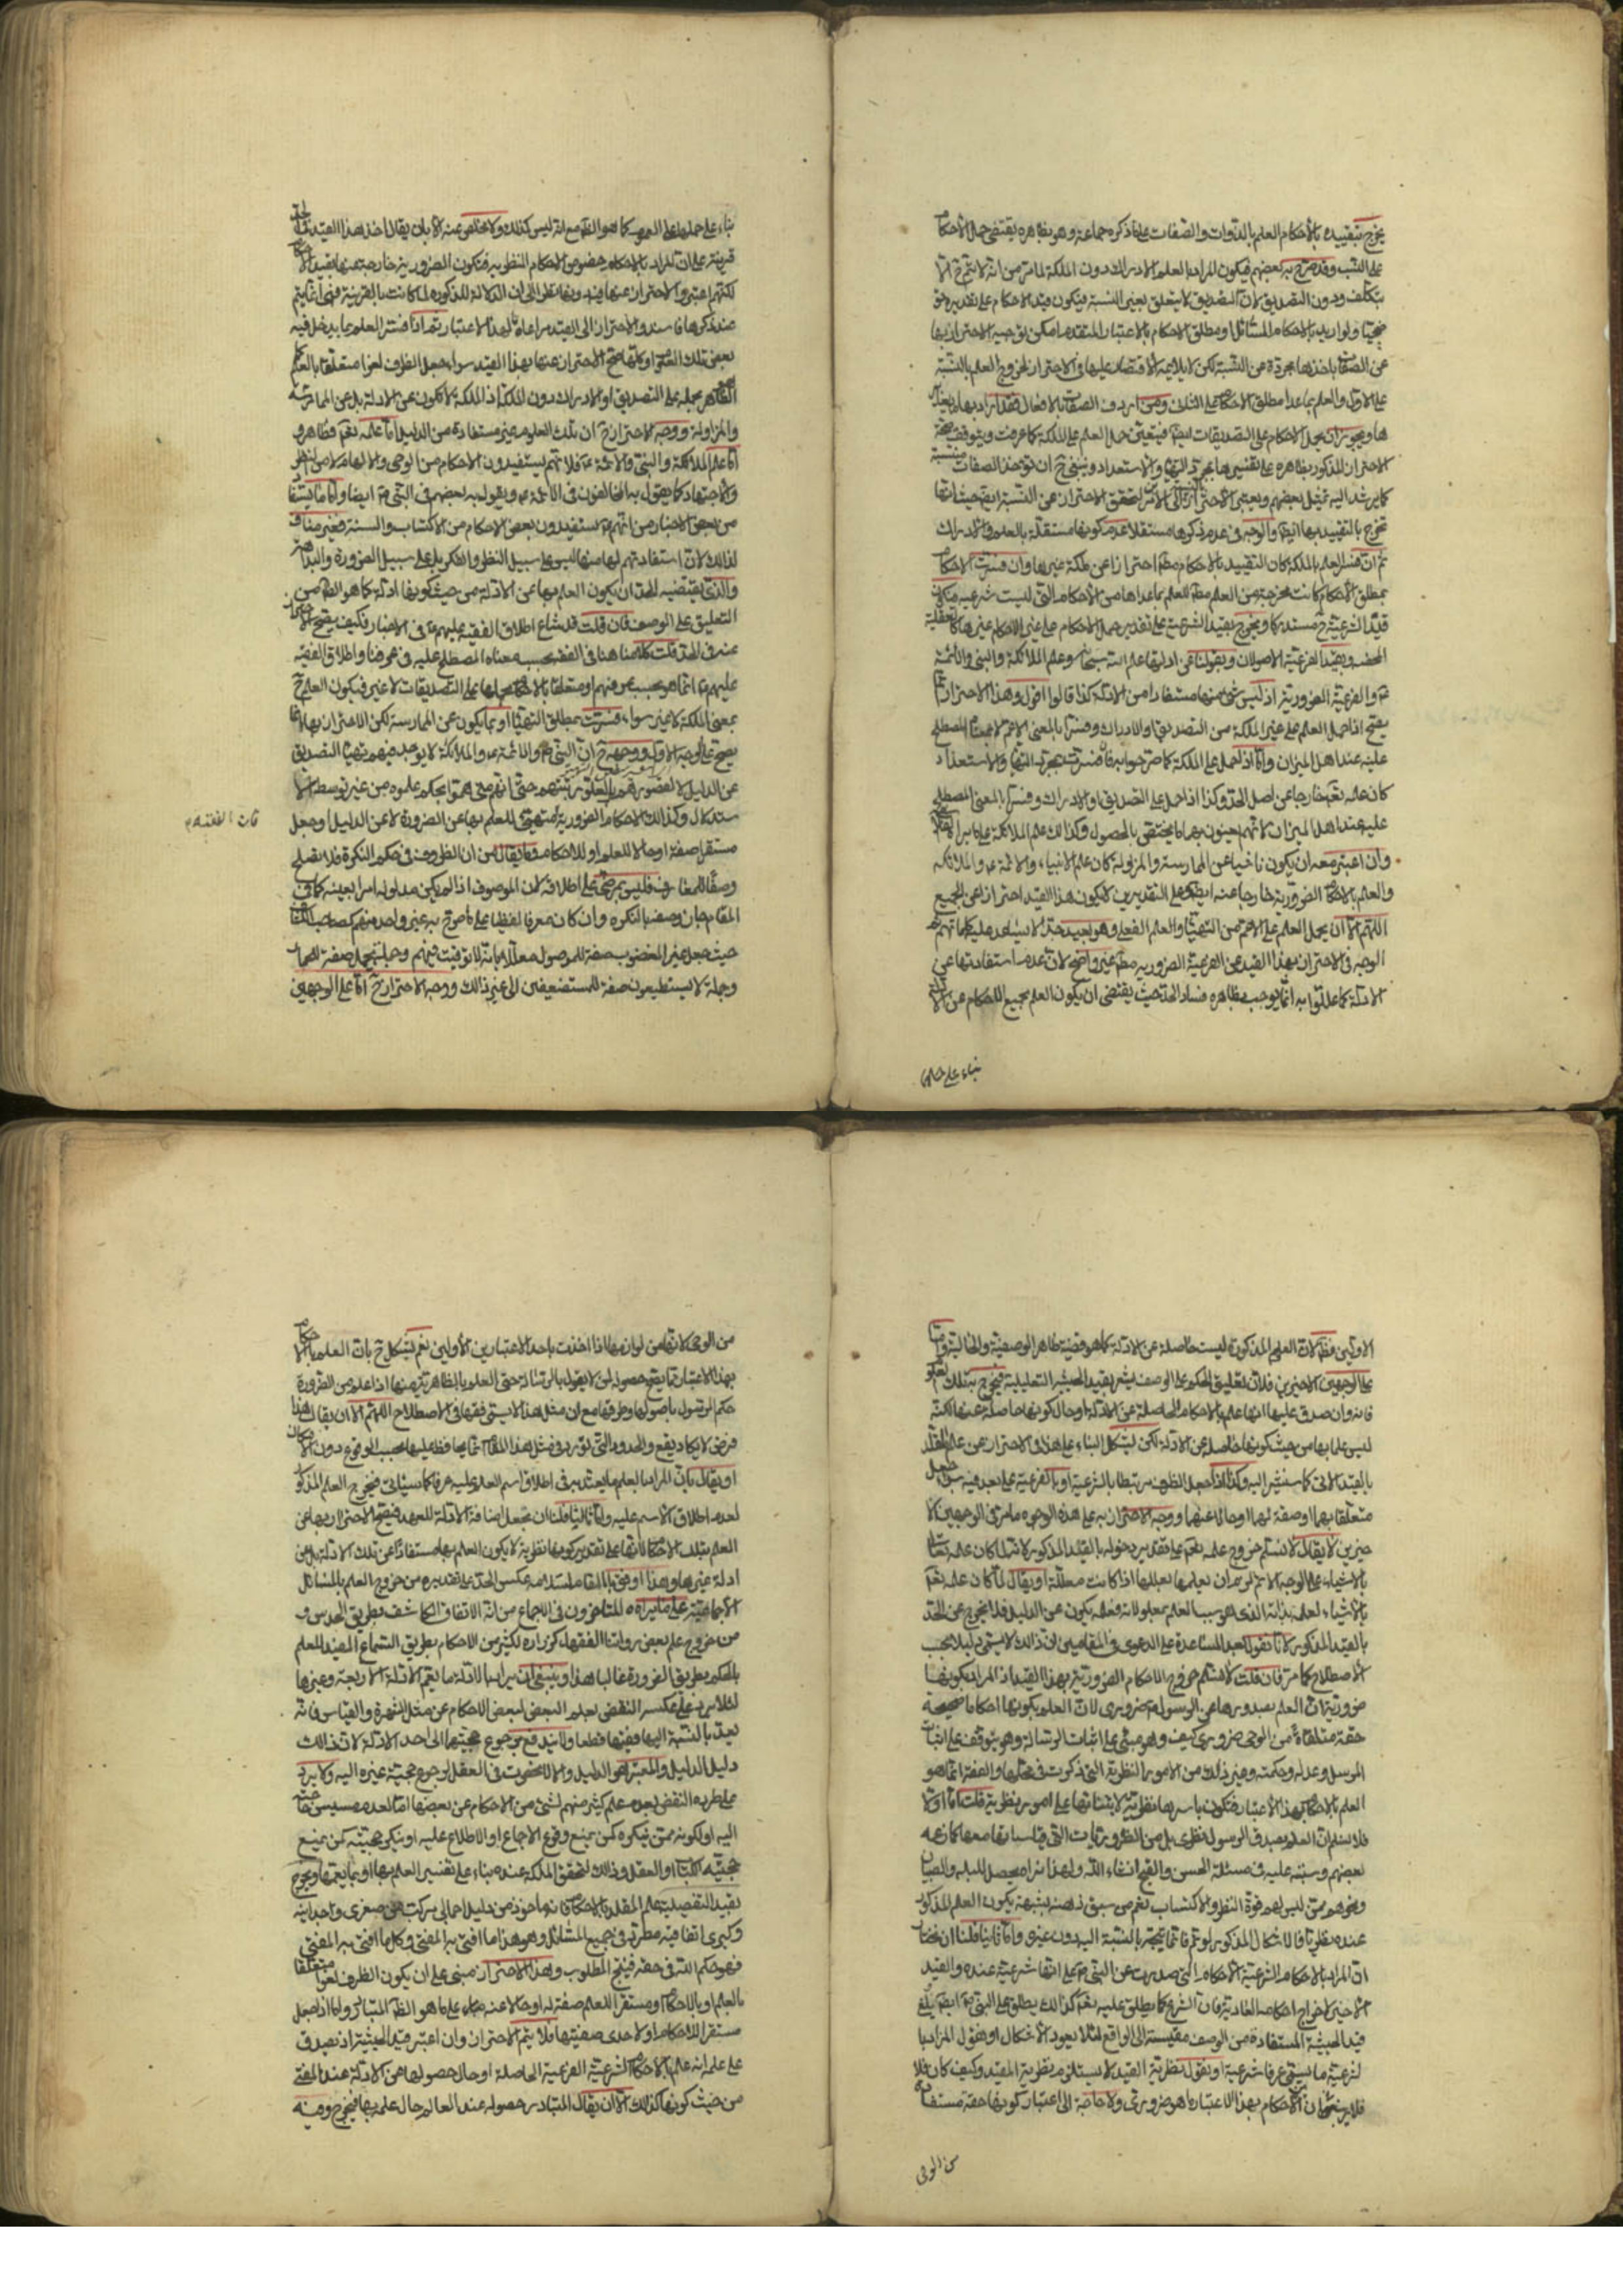 يخرج بتقييده بالاحكام العلم بالذوات والصفات على ما ذكره جماعة وهو بظاهره يقتضي حمل الاحكام
على النسب وقد صرح به بعضهم فيكون المراد بالعلم الادراك دون الملكة لما مر من انه لا يتم ح الا
بتكلف ودون التصديق لان التصديق لا يتعلق بغير النسبة فيكون قيد الاحكام على تقديره
ولو اريد بالاحكام المسائل او مطلق الاحكام بالاعتبار المتقدم امكن توجيه الاحتراز بها
عن الصفات باخذها مجردة عن النسبة لكن لا يلايمه الاقتصار عليها في الاحتراز لخروج العلم بالنسبة
على الاول والعلم بما عدا مطلق الاحكام على الثاني ومن اردف الصفات بالافعال فقد اراد بها
ويجوز ان يحمل الاحكام على التصديقات ايضا فيتعين حمل العلم على الملكة كما عرفت ويتوقف صحة
الاحتراز المذكور بظاهره على تفسيرها بمجرد التهيؤ والاستعداد وينبغي ح ان تؤخذ الصفات منتسبة
كما يرشد اليه تمثيل بعضهم ويعتبر الاحتراز بالنسبة الى الامرين ليتحقق الاحتراز عن النسبة ايضا حيث انها
تخرج بالتقييد بها ايضا والوجه في عدم ذكرها مستقلا عدم كونها مستقلة بالعلم والادراك
ثم ان فسر العلم بالملكة كان التقييد بالاحكام مطلقا احترازا عن ملكة غيرها وان فسرت الاحكام
بمطلق الاحكام كانت مخرجة من العلم مطلقا للعلم بما عداها من الاحكام التي ليست شرعية فيكون
قيد الشرعية ح مستدركا ويخرج بقيد الشرعية على تقدير حمل الاحكام على غير الاحكام غيرها كالعقلية
المحضة وبقيد الفرعية الاصولات وبقولنا عن ادلتها علم الله سبحانه وعلم الملائكة والنبي والائمة
ع والفرعية الضرورية اذ ليس شيء منها مستفادا من الادلة كذا قالوا اقول وهذا الاحتراز انما
يصح اذا حمل العلم على غير الملكة من التصديق او الادراك وفسرا بالمعنى الاعم لا بمعناه المصطلح
عليه عند اهل الميزان واما اذا حمل على الملكة كما صرحوا به فان فسرت بمجرد التهيؤ والاستعداد
كان علمه تعالى خارجا عن اصل الحد وكذا اذا حمل على التصديق او الادراك وفسرا بالمعنى المصطلح
عليه عند اهل الميزان لانهم يعنون بهما ما يختص بالحصول وكذلك علم الملائكة على ما يراه
وان اعتبر معه ان يكون ناشيا عن الممارسة والمزاولة كان علم الانبياء والائمة ع والملائكة
والعلم بالاحكام الضرورية خارجا عنه ايضا وعلى التقديرين لا يكون هذا القيد احترازا عن الجميع
اللهم الا ان يحمل العلم على الاعم من التهيؤ والعلم الفعلي وهو بعيد جدا لا يساعد عليه كلماتهم ثم
الوجه في الاحتراز بهذا القيد عن الفرعية الضرورية مطلقا غير واضح لان عدم استفادتها عن
الادلة كما عللوا به انما يوجب بظاهره فساد الحد حيث يقتضي ان يكون العلم بجميع الاحكام عن الادلة
بناء على حملها
بناء على حملها على العموم كما هو الظاهر مع انه ليس كذلك ولا مخلص عنه الا بان يقال اخذ هذا القيد في الحد
قرينة على ان المراد بالاحكام خصوص الاحكام النظرية فتكون الضرورية خارجة عنها بقيد الاحكام
لكنهم اعتبروا الاحتراز عنها فيه نظرا الى ان الدلالة المذكورة لما كانت بالقرينة فهي انما يتم
عند ذكرها فاسندوا الاحتراز الى القيد مراعاة لهذا الاعتبار ثم اذا فسر العلم بما يدخل فيه
بعض تلك العلوم او كلها صح الاحتراز عنها بهذا القيد سواء جعل الظرف لغوا متعلقا بالعلم
الظاهر بحمله على التصديق او الادراك دون الملكة اذ الملكة لا تكون عن الادلة بل عن الممارسة
والمزاولة ووجه الاحتراز ح ان تلك العلوم غير مستفادة من الدليل اما علمه تعالى فظاهر و
اما علم الملائكة والنبي والائمة ع فلانهم يستفيدون الاحكام من الوحي والالهام لا من النظر
والاجتهاد كما يقول به المخالفون في الائمة ع ويقول به بعضهم في النبي ص ايضا واما ما يستفاد
من بعض الاخبار من انهم ع يستفيدون بعض الاحكام من الكتاب والسنة فغير مناف
لذلك لان استفادتهم لها منها ليس على سبيل النظر والفكر بل على سبيل الضرورة والبداهة
والذي يقتضيه الحد ان يكون العلم بها عن الادلة من حيث كونها ادلة كما هو الظاهر من
التعليق على الوصف فان قلت قد شاع اطلاق الفقيه عليهم ع في الاخبار فكيف يصح الاحتراز
عنه في الحد قلت كلامنا هنا في الفقه بحسب معناه المصطلح عليه في عرفنا واطلاق الفقيه
عليهم ع انما هو بحسب عرفهم او متعلقا بالاحكام بحملها على التصديقات لا غير فيكون العلم ح
بمعنى الملكة لا غير سواء فسرت بمطلق التهيؤ او بما يكون عن الممارسة لكن الاحتراز بها انما
يصح على الوجه الاول ووجهه ح ان النبي ص والائمة ع والملائكة لا يوجد فيهم تهيؤ التصديق
عن الدليل لا لقصورهم بل لعلو رتبتهم حتى انهم متى هموا بحكم علموه من غير توسط الا
ستدلال وكذلك الاحكام الضرورية فالمتهيئ للعلم بها عن الضرورة لا عن الدليل او جعل
مستقرا صفة او حالا للعلم او للاحكام وما يقال من ان الظروف في حكم النكرة فلا تصلح
وصفا للمعارف فليس بمرضي على اطلاقه لان الموصوف اذا لم يكن مدلوله امرا بعينه كما في
المقام جاز وصفه بالنكرة وان كان معرفا لفظا على ما صرح به غير واحد منهم كصاحب الكشاف
حيث جعل غير المغضوب صفة للموصول معللا بانه لا توقيت فيهم وجملة يحمل صفة للحمار
وجملة لا يستطيعون صفة للمستضعفين الى غير ذلك ووجه الاحتراز ح اما على الوجهين
الاولين فظاهر لان العلوم المذكورة ليست حاصلة عن الادلة كما هو قضية ظاهر الوصفية والحالية واما
على الوجهين الاخيرين فلان تعليق الحكم على الوصف يشعر بقيد الحيثية التعليلية فيخرج بتلك العلوم
فانه وان صدق عليها انها علم بالاحكام الحاصلة عن الادلة او حال كونها حاصلة عنها لكنه
ليس علما بها من حيث كونها حاصلة عن الادلة لكن يشكل البناء على هذا في الاحتراز عن علم المقلد
بالقيد الاتي كما سنشير اليه وكذا اذا جعل الظرف مرتبطا بالشرعية او بالفرعية على بعد فيه سواء جعل
متعلقا بهما او صفة لهما او حالا عنهما ووجه الاحتراز به على هذه الوجوه ما مر في الوجهين الا
خيرين لا يقال لا نسلم خروج علمه تعالى على تقدير دخوله بالقيد المذكور لانه لما كان علمه تعالى
بالاشياء على الوجه الاتم لزم ان يعلمها بعللها اذا كانت معللة او يقال لما كان علمه تعالى
بالاشياء لعلمه بذاته الذي هو سبب العلم بمعلولاته فعلمه يكون عن الدليل فلا يخرج عن الحد
بالقيد المذكور لانا نقول بعد المساعدة على الدعوى في المقامين ان ذلك لا يسمى دليلا بحسب
الاصطلاح كما مر فان قلت لا نسلم خروج الاحكام الضرورية بهذا القيد اذ المراد بكونها
ضرورية ان العلم بصدورها عن الرسول ص ضروري لا ان العلم بكونها احكاما صحيحة
حقة متلقاة من الوحي ضروري كيف وهو مبني على اثبات الرسالة وهو يتوقف على اثبات
المرسل وعدله وحكمته وغير ذلك من الامور النظرية التي ذكرت في محلها والفقه انما هو
العلم بالاحكام بهذا الاعتبار فتكون باسرها نظرية لابتنائها على امور نظرية قلت اما اولا
فلا نسلم ان العلم بصدق الرسول نظري بل من الضروريات التي قياساتها معها كما زعمه
بعضهم وسننبه عليه في مسئلة الحسن والقبح انشاء الله ولهذا تراه يحصل للبله والصبيان
ونحوهم ممن ليس لهم قوة النظر والاكتساب نعم من سبق ذهنه بشبهة يكون العلم المذكور
عنده نظريا فالاشكال المذكور لو تم فانما يتجه بالنسبة اليه دون غيره واما ثانيا فلنا ان نختار
ان المراد بالاحكام الشرعية الاحكام التي صدرت عن النبي ص على انها شرعية عنده والقيد
الاخير لاخراج احكامه العادية فان الشرع كما يطلق عليه تعالى كذلك يطلق على النبي ص ايضا
قيد الحيثية المستفادة من الوصف مقيسة الى الواقع لئلا يعود الاشكال او نقول المراد بها
شرعية ما يسمى عرفا شرعية او نقول نظرية القيد لا يستلزم نظرية المقيد وكيف كان فلا
فلا ريب ان الاحكام بهذا الاعتبار ما هو ضروري ولا حاجة الى اعتبار كونها حقة مستفادة
من الوحي
من الوحي لانها من لوازمها اذا اخذت باحد الاعتبارين الاولين نعم يشكل ح بان العلم بالاحكام
بهذا الاعتبار مما يصح حصوله لمن لا يقول بالرسالة حتى العلم بالظاهرية منها اذا علم من الضرورة
حكم الرسول باصولها وطرقها مع ان مثل هذا لا يسمى فقها في الاصطلاح اللهم الا ان يقال هذا
فرض لا يكاد يقع والحدود التي تورد في مثل هذا المقام انما يحافظ عليها بحسب الوقوع دون الامكان
او يقال بان المراد بالعلم ما يعتد به في اطلاق اسم العلم عليه عرفا كما سياتي فيخرج العلم المذكور
لعدم اطلاق الاسم عليه واما ثالثا فلنا ان نجعل اضافة الادلة للعهد فيصح الاحتراز بها عن
العلم بتلك الاحكام لانها على تقدير كونها نظرية لا يكون العلم بها مستفادا عن تلك الادلة بل من
ادلة غيرها وهذا اوفق بالمقام لسلامة عكس الحد على تقديره من خروج العلم بالمسائل
الاجماعية على ما يراه المتاخرون في الاجماع من انه الاتفاق الكاشف بطريق الحدس و
من خروج علم بعض رواتنا الفقهاء كزرارة لكثير من الاحكام بطريق السماع المفيد للعلم
بالحكم بطريق الضرورة غالبا هذا وينبغي ان يراد بالادلة ما يعم الادلة الاربعة وغيرها
لئلا ينتقض عكسه النقض بعلم البعض لبعض الاحكام عن مثل الشهرة والقياس فانه
يعد بالنسبة اليها فقيها قطعا ولا يندفع برجوع حجيتها الى احد الادلة لان ذلك
دليل الدليل والمعتبر هو الدليل والا لانحصرت في العقل لرجوع حجية غيره اليه ولا يرد
على طرده النقض بعدم علم كثير منهم لشيء من الاحكام عن بعضها اما لعدم مسيس حاجته
اليه او لكونه ممن ينكره كمن يمنع وقوع الاجماع او الاطلاع عليه او ينكر حجيته كمن يمنع
حجية الكتاب او العقل وذلك لتحقق الملكة عنده بناء على تفسير العلم بها او بما يعمها ويخرج
بقيد التفصيلية علم المقلد بالاحكام فانه ماخوذ من دليل اجمالي مركب من صغرى وجدانية
وكبرى اتفاقية مطردة في جميع المسائل وهو هذا ما افتى به المفتي وكل ما افتى به المفتي
فهو حكم الله في حقه فينتج المطلوب وهذا الاحتراز مبني على ان يكون الظرف لغوا متعلقا
بالعلم او بالاحكام ومستقرا للعلم صفة له او حالا عنه بناء على ما هو الظاهر المتبادر واما اذا جعل
مستقرا للاحكام او لاحدى صفتيها فلا يتم الاحتراز وان اعتبر قيد الحيثية اذ يصدق
على علمه انه علم بالاحكام الشرعية الفرعية الحاصلة او حال حصولها عن الادلة عند المفتي
من حيث كونها كذلك الا ان يقال المتبادر حصوله عند العالم حال علمه بها فيخرج وفيه